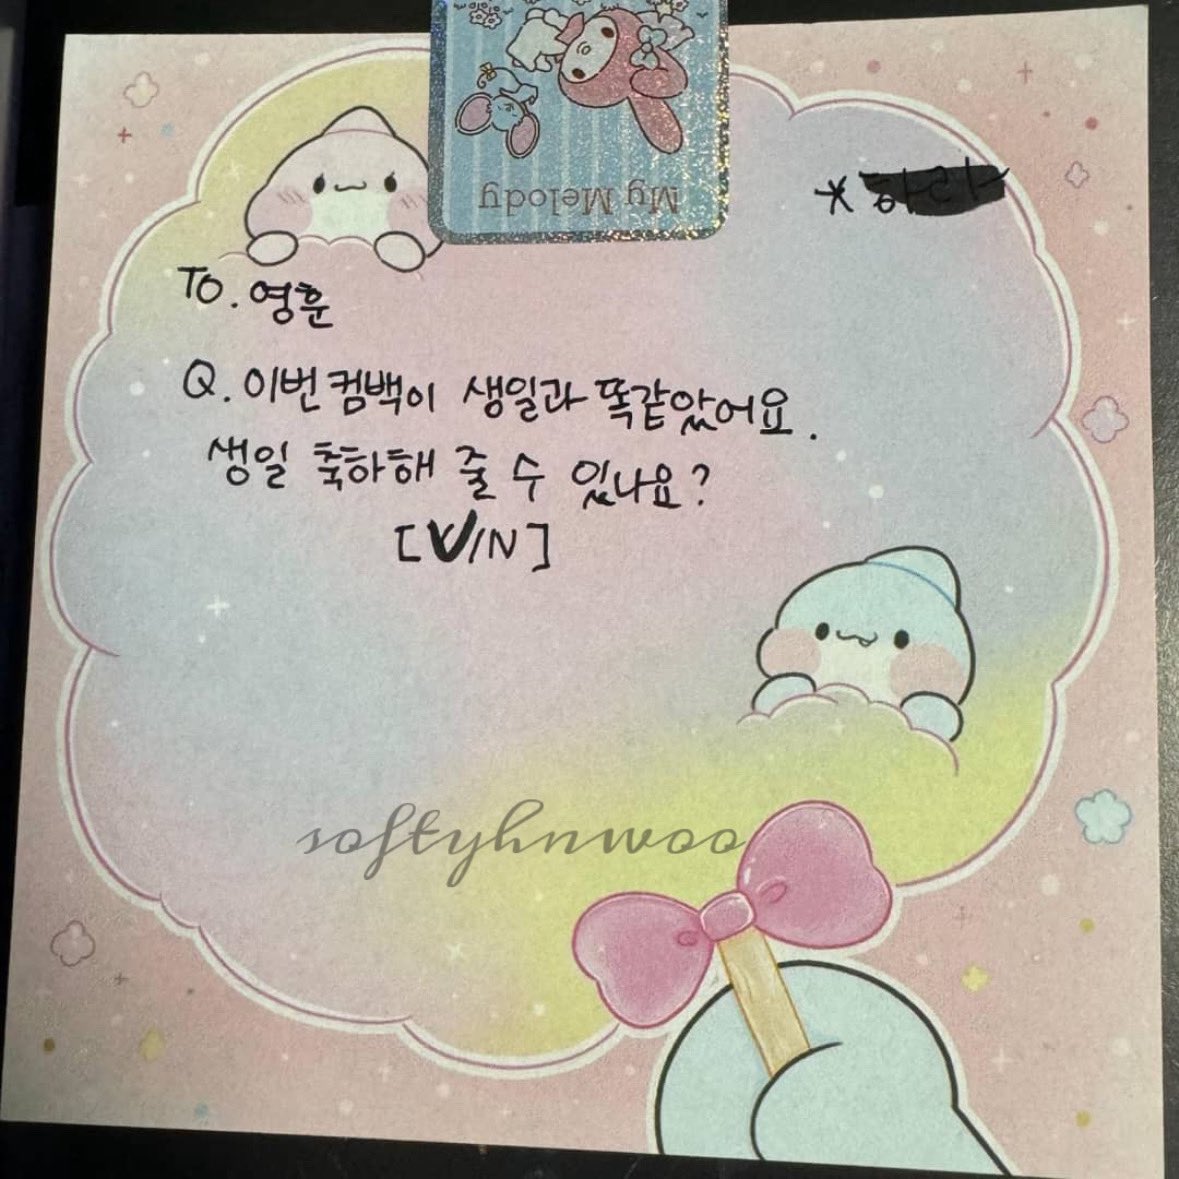 My Melody
TO. 영훈
Q. 이번 컴백이 생일과 똑같았어요.
생일 축하해 줄 수 있나요?
[V/N]
softyhnwoo